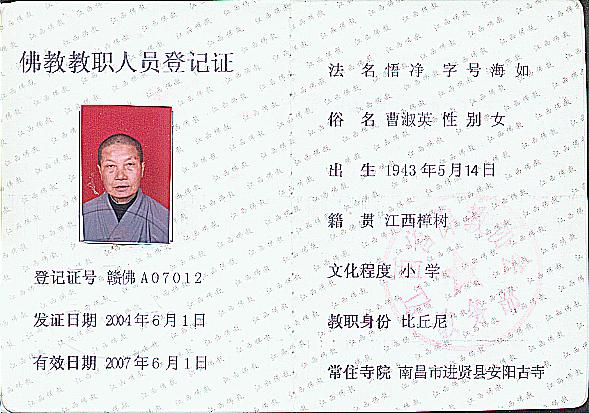 佛教教职人员登记证
登记证号 赣佛A07012
发证日期 2004年6月1日
有效日期 2007年6月1日
法 名 悟 净 字 号 海 如
俗 名 曹淑英 性 别 女
出 生 1943年5月14日
籍 贯 江西樟树
文化程度 小 学
教职身份 比丘尼
常住寺院 南昌市进贤县安阳古寺